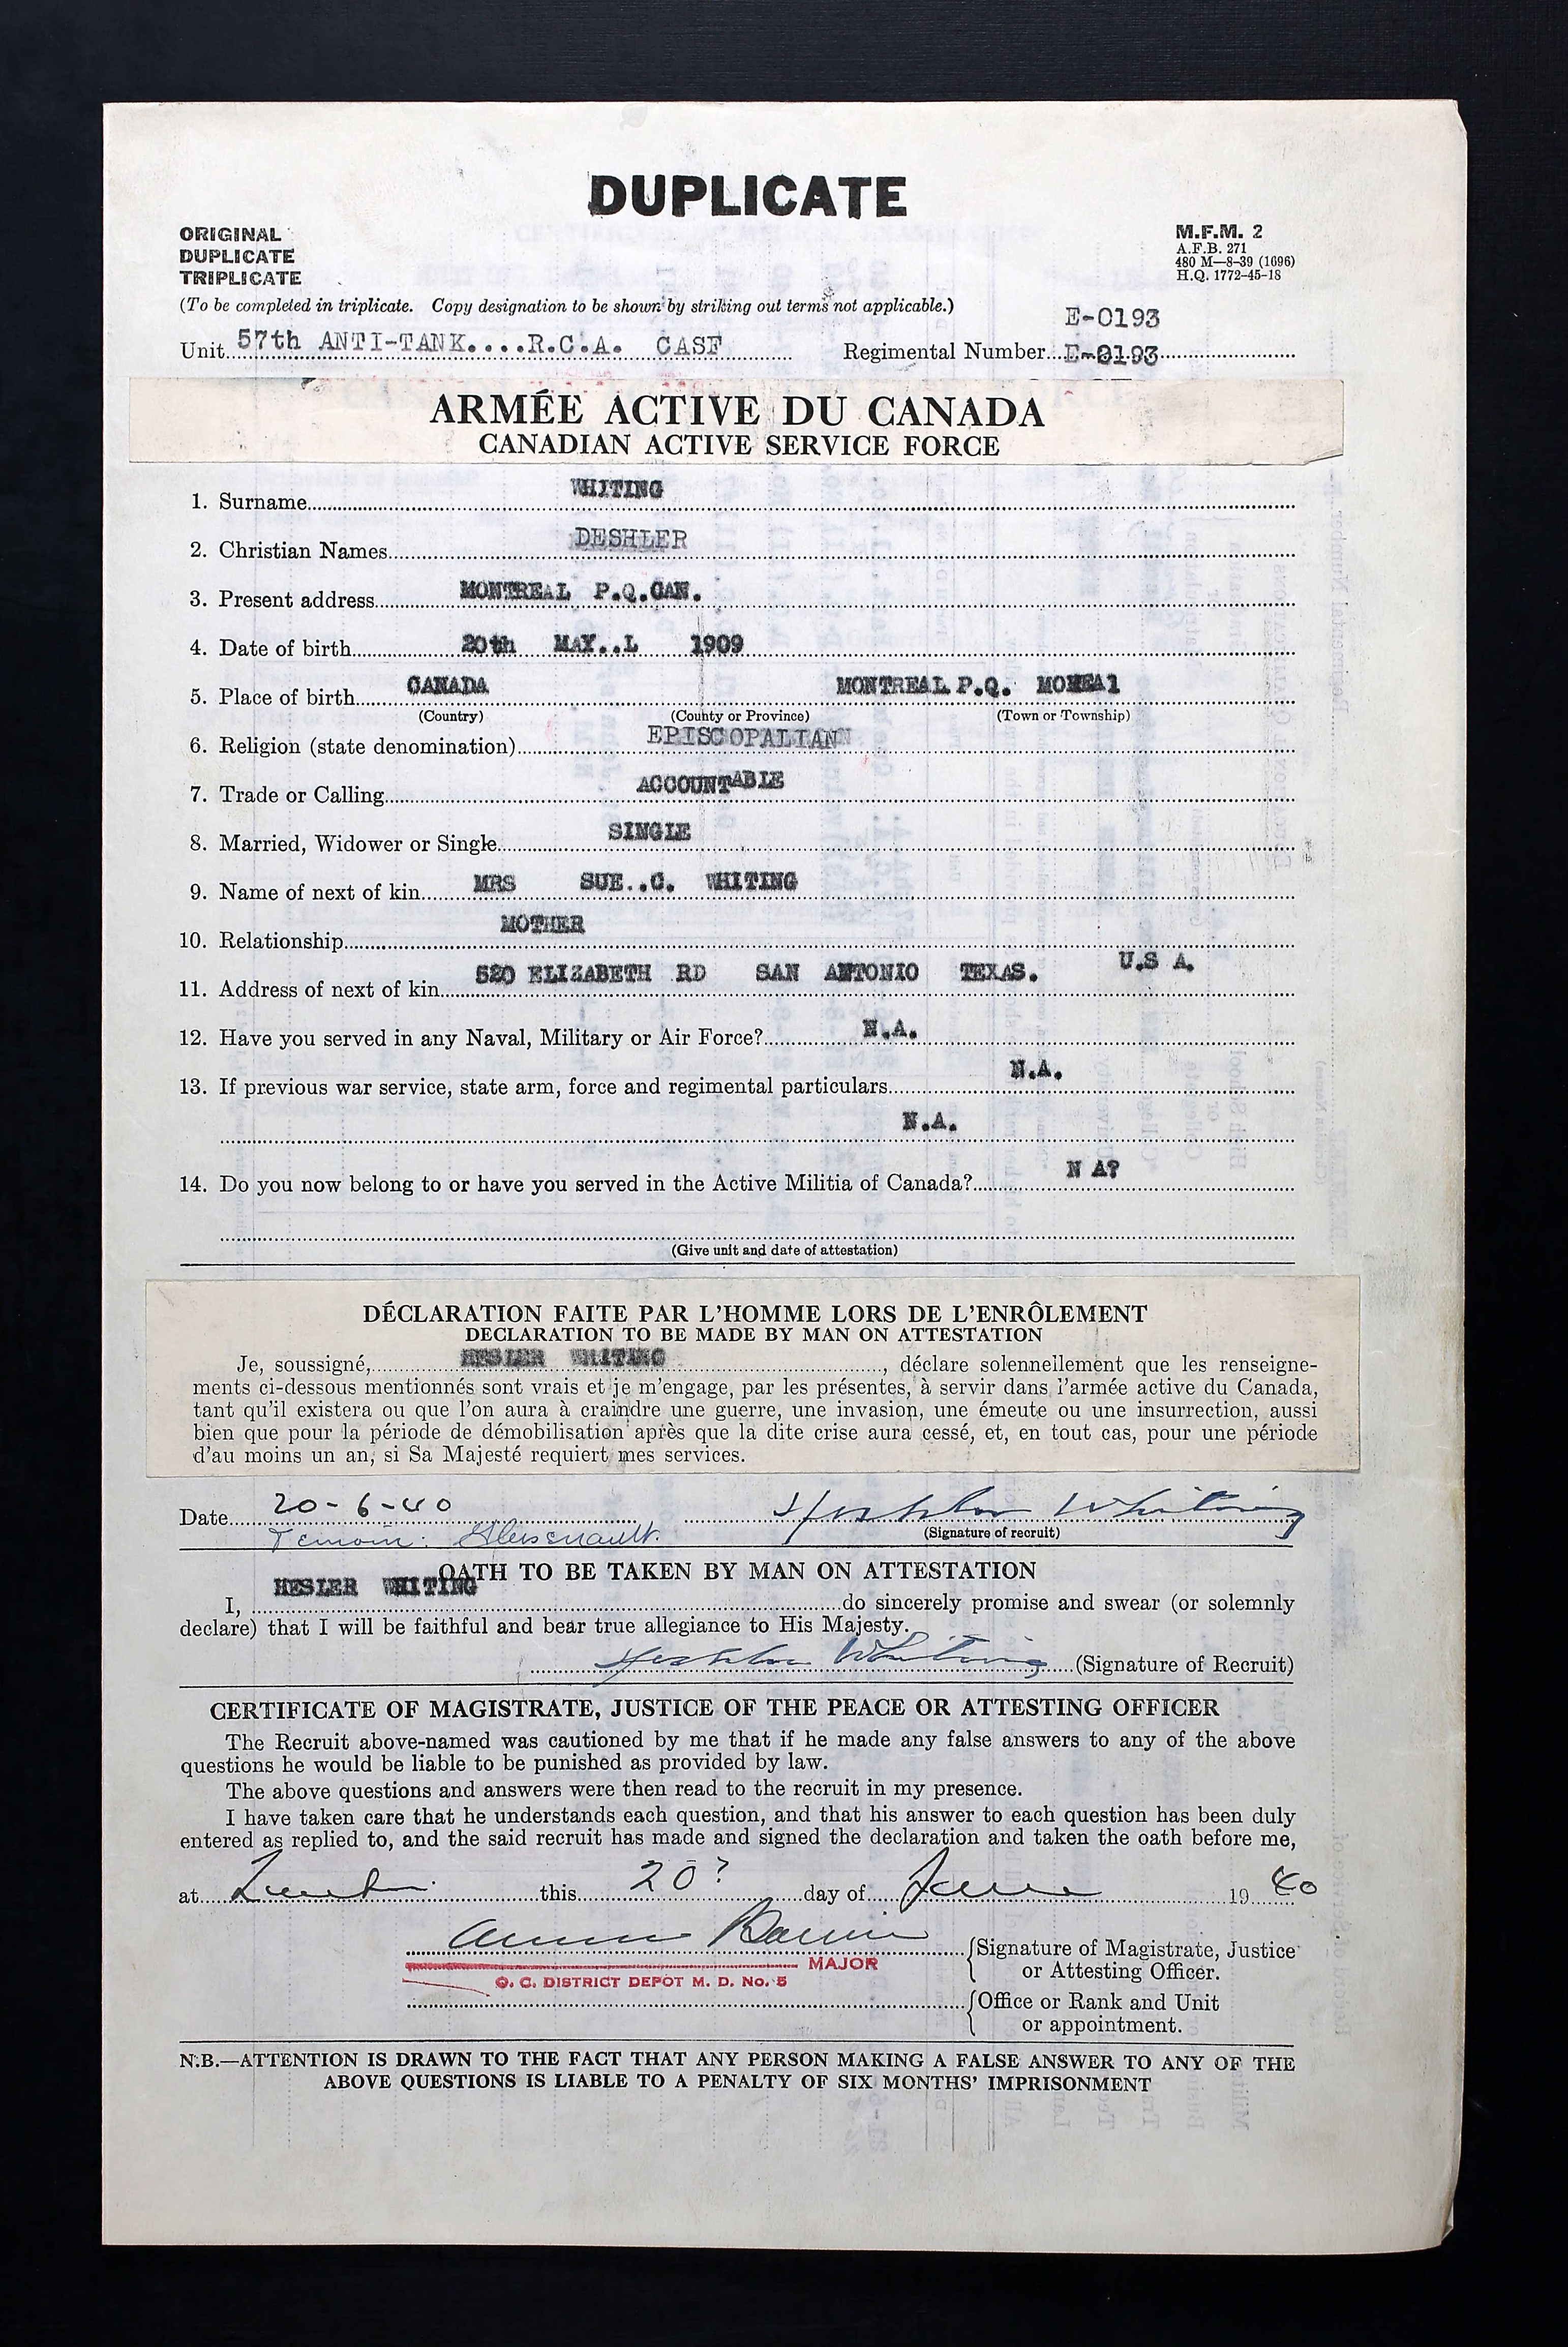 DUPLICATE
ORIGINAL
DUPLICATE
TRIPLICATE
M.F.M. 2
A.F.B. 271
480 M—8-39 (1696)
H.Q. 1772-45-18
(To be completed in triplicate. Copy designation to be shown by striking out terms not applicable.)
E-0193
Unit 57th ANTI-TANK....R.C.A. CASF Regimental Number E-0193
ARMÉE ACTIVE DU CANADA
CANADIAN ACTIVE SERVICE FORCE
1. Surname WHITING
2. Christian Names DESHLER
3. Present address MONTREAL P.Q.CAN.
4. Date of birth 20th MAY..L 1909
5. Place of birth CANADA MONTREAL P.Q.
(Country) (County or Province) (Town or Township)
6. Religion (state denomination) EPISCOPALIAN
7. Trade or Calling ACCOUNTABLE
8. Married, Widower or Single SINGLE
9. Name of next of kin MRS SUE..C. WHITING
10. Relationship MOTHER
11. Address of next of kin 520 ELIZABETH RD SAN ANTONIO TEXAS. U.S A.
12. Have you served in any Naval, Military or Air Force? N.A.
13. If previous war service, state arm, force and regimental particulars N.A.
N.A.
14. Do you now belong to or have you served in the Active Militia of Canada? N A?
(Give unit and date of attestation)
DÉCLARATION FAITE PAR L'HOMME LORS DE L'ENRÔLEMENT
DECLARATION TO BE MADE BY MAN ON ATTESTATION
Je, soussigné, HESLER WHITING, déclare solennellement que les renseigne-
ments ci-dessous mentionnés sont vrais et je m'engage, par les présentes, à servir dans l'armée active du Canada,
tant qu'il existera ou que l'on aura à craindre une guerre, une invasion, une émeute ou une insurrection, aussi
bien que pour la période de démobilisation après que la dite crise aura cessé, et, en tout cas, pour une période
d'au moins un an, si Sa Majesté requiert mes services.
Date 20-6-40 Heshler Whiting
(Signature of recruit)
Temoin:
OATH TO BE TAKEN BY MAN ON ATTESTATION
I, HESLER WHITING do sincerely promise and swear (or solemnly
declare) that I will be faithful and bear true allegiance to His Majesty.
Heshler Whiting (Signature of Recruit)
CERTIFICATE OF MAGISTRATE, JUSTICE OF THE PEACE OR ATTESTING OFFICER
The Recruit above-named was cautioned by me that if he made any false answers to any of the above
questions he would be liable to be punished as provided by law.
The above questions and answers were then read to the recruit in my presence.
I have taken care that he understands each question, and that his answer to each question has been duly
entered as replied to, and the said recruit has made and signed the declaration and taken the oath before me,
at this 20 day of June 19 40
{Signature of Magistrate, Justice
or Attesting Officer.
MAJOR
O. C. DISTRICT DEPOT M. D. No. 5
{Office or Rank and Unit
or appointment.
N.B.—ATTENTION IS DRAWN TO THE FACT THAT ANY PERSON MAKING A FALSE ANSWER TO ANY OF THE
ABOVE QUESTIONS IS LIABLE TO A PENALTY OF SIX MONTHS' IMPRISONMENT